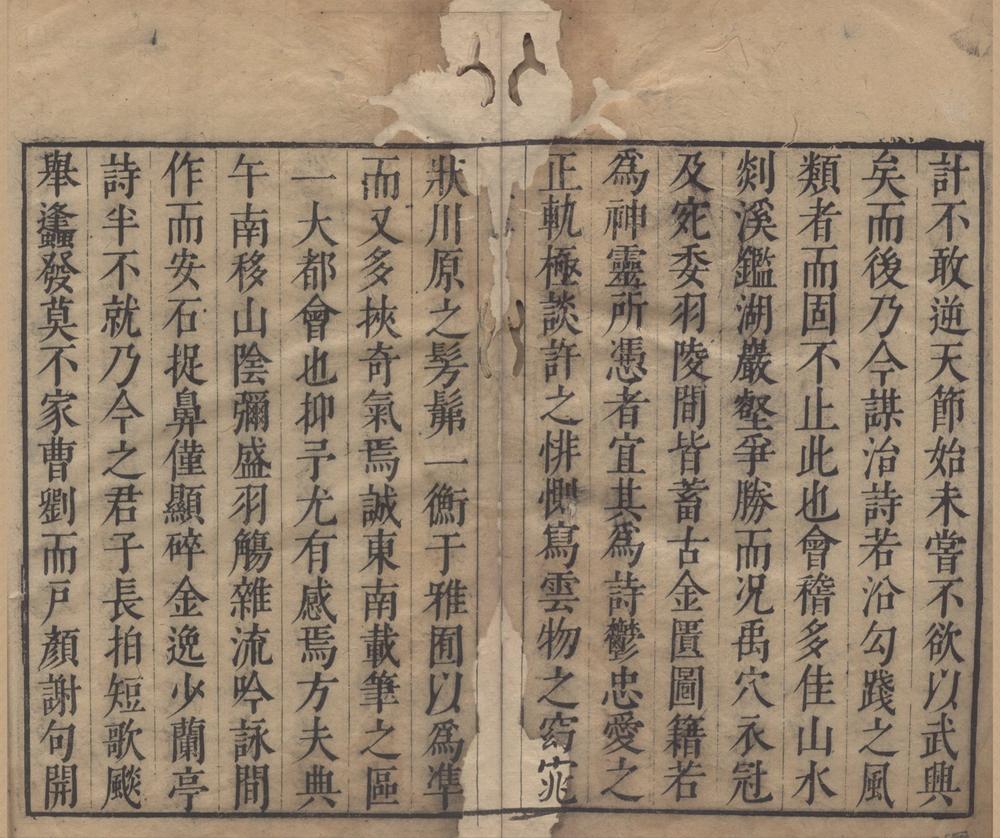 計不敢逆天節始未嘗不欲以武興
矣而後乃今謀治詩若沿勾踐之風
類者而固不止此也會稽多佳山水
剡溪鑑湖巖壑爭勝而况禹穴衣冠
及宛委羽陵間皆蓄古金匱圖籍若
爲神靈所憑者宜其爲詩鬱忠愛之
正軌極談許之悱惻寫雲物之窈窕
狀川原之髣髴一衡于雅囿以爲準
而又多挾奇氣焉誠東南載筆之區
一大都會也抑予尤有感焉方夫典
午南移山陰彌盛羽觴雜流吟詠間
作而安石捉鼻僅顯碎金逸少蘭亭
詩半不就乃今之君子長拍短歌颷
舉逢發莫不家曹劉而戸顏謝句開